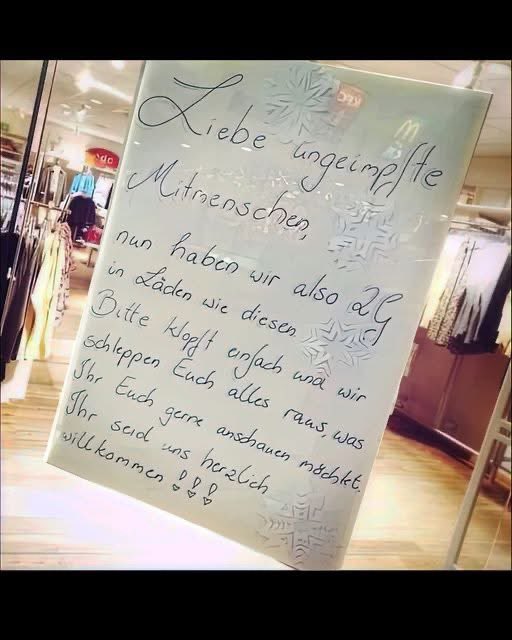 Liebe ungeimpfte
Mitmenschen,
nun haben wir also 2G
in Läden wie diesen.
Bitte klopft einfach und wir
schleppen Euch alles raus, was
Ihr Euch gerne anschauen möchtet.
Ihr seid uns herzlich
willkommen !!!